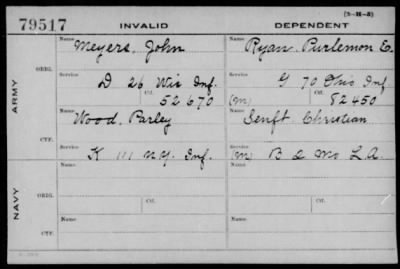 (3-H-8)
79517 INVALID DEPENDENT
ARMY
ORIG.
Name Meyers, John Name Ryan, Purlemon E.
Service D 26 Wis Inf. Service G 70 Ohio Inf
Ctf. 52 670 (m) Ctf. 82 450
CTF.
Name Wood, Parley Name Senft Christian
Service K 111 N.Y. Inf. Service (m) B 2 Mo L.A.
NAVY
ORIG.
Name Name
Service Ctf. Service Ctf.
CTF.
Name Name
Service Service